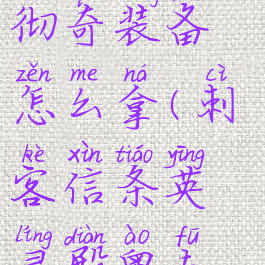 彻奇装备
zěn me ná cì
怎么拿(刺
kè xìn tiáo yīng
客信条英
líng diàn ào fū
灵殿奥夫